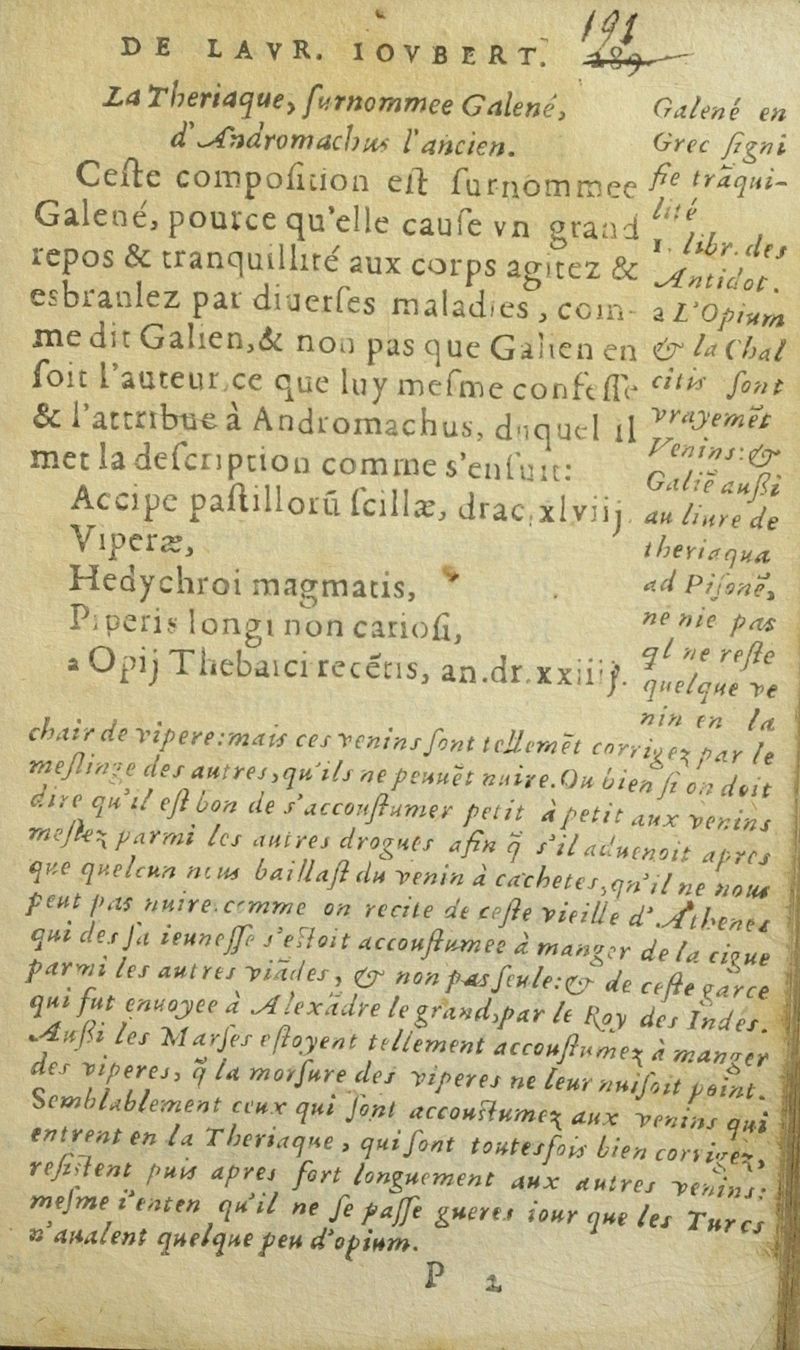 191
DE LAVR. IOVBERT. 189
La Theriaque, ſurnommee Galené,
d'Andromachus l'ancien.
Ceſte compoſition eſt ſurnommee
Galené, pource qu'elle cauſe vn grand
repos & tranquillité aux corps agitez &
esbranlez par diuerſes maladies, com-
me dit Galien, & non pas que Galien en
ſoit l'auteur, ce que luy meſme confeſſe
& l'attribue à Andromachus, duquel il
met la deſcription comme s'enſuit:
Accipe paſtillorū ſcillæ, drac. xlviij.
Viperæ,
Hedychroi magmatis,
Piperis longi non carioſi,
a Opij Thebaici recētis, an. dr. xxiiij.
Galené en
Grec ſigni
fie trāqui-
lité
1. libr. des
Antidot.
a L'Opium
& la Chal
citis ſont
vrayemēt
venins: &
Galiē auſſi
au liure de
theriaqua
ad Piſonē,
ne nie pas
ql ne reſte
quelque ve
nin en la
chair de vipere: mais ces venins ſont tellemēt corrigez par le
meſlinge des autres, qu'ils ne peuuēt nuire. Ou bien ſi on doit
dire qu'il eſt bon de s'accouſtumer petit à petit aux venins
meſlez parmi les autres drogues afin q̄ s'il aduenoit apres
que quelcun nous baillaſt du venin à cachetes, qu'il ne nous
peut pas nuire. comme on recite de ceſte vieille d'Athenes
qui des ſa ieuneſſe s'eſtoit accouſtumee à manger de la cigue
parmi les autres viādes, & non pas ſeule: & de ceſte garce
qui fut enuoyee à Alexādre le grand, par le Roy des Indes.
Auſſi les Marſes eſtoyent tellement accouſtumez à manger
des viperes, q̄ la morſure des viperes ne leur nuiſoit point.
Semblablement ceux qui ſont accouſtumez aux venins qui
entrent en la Theriaque, qui ſont toutesfois bien corrigez,
reſiſtent puis apres fort longuement aux autres venins:
meſme i'enten qu'il ne ſe paſſe gueres iour que les Turcs
n'aualent quelque peu d'opium.
P 2